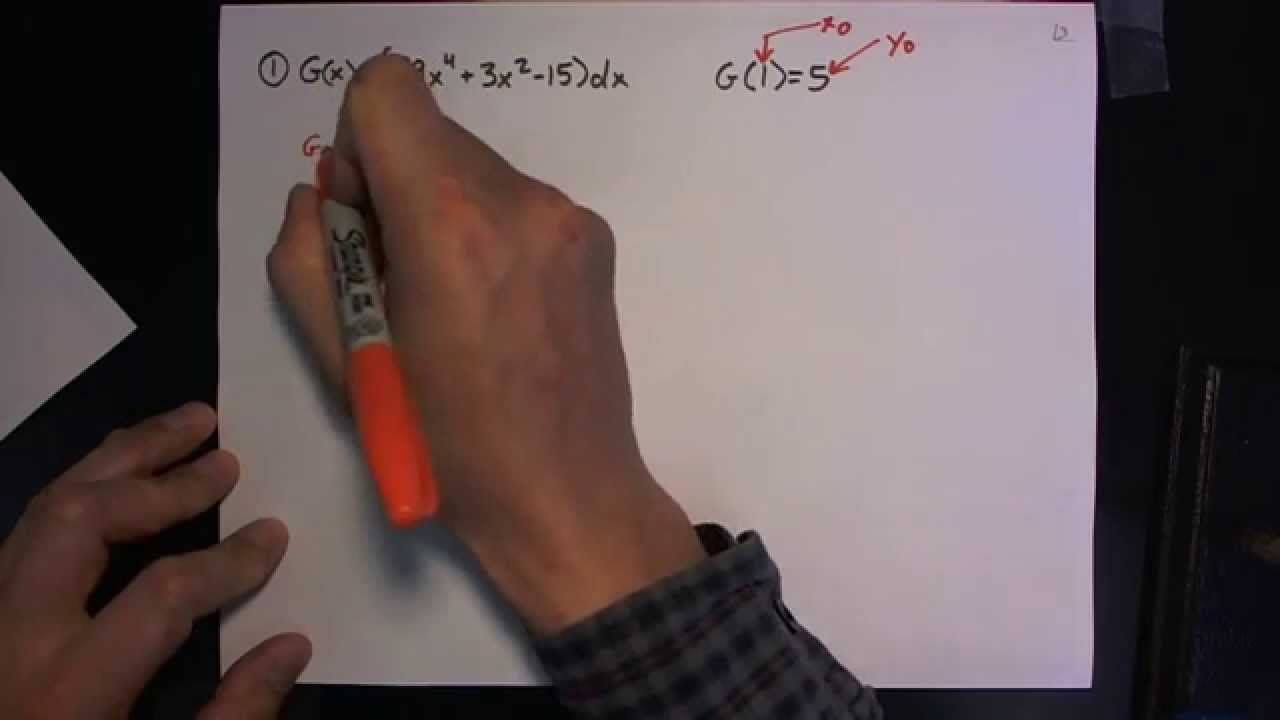 x₀
① G(x) 9x⁴ + 3x² - 15) dx G(1) = 5 y₀
G
Sharpie